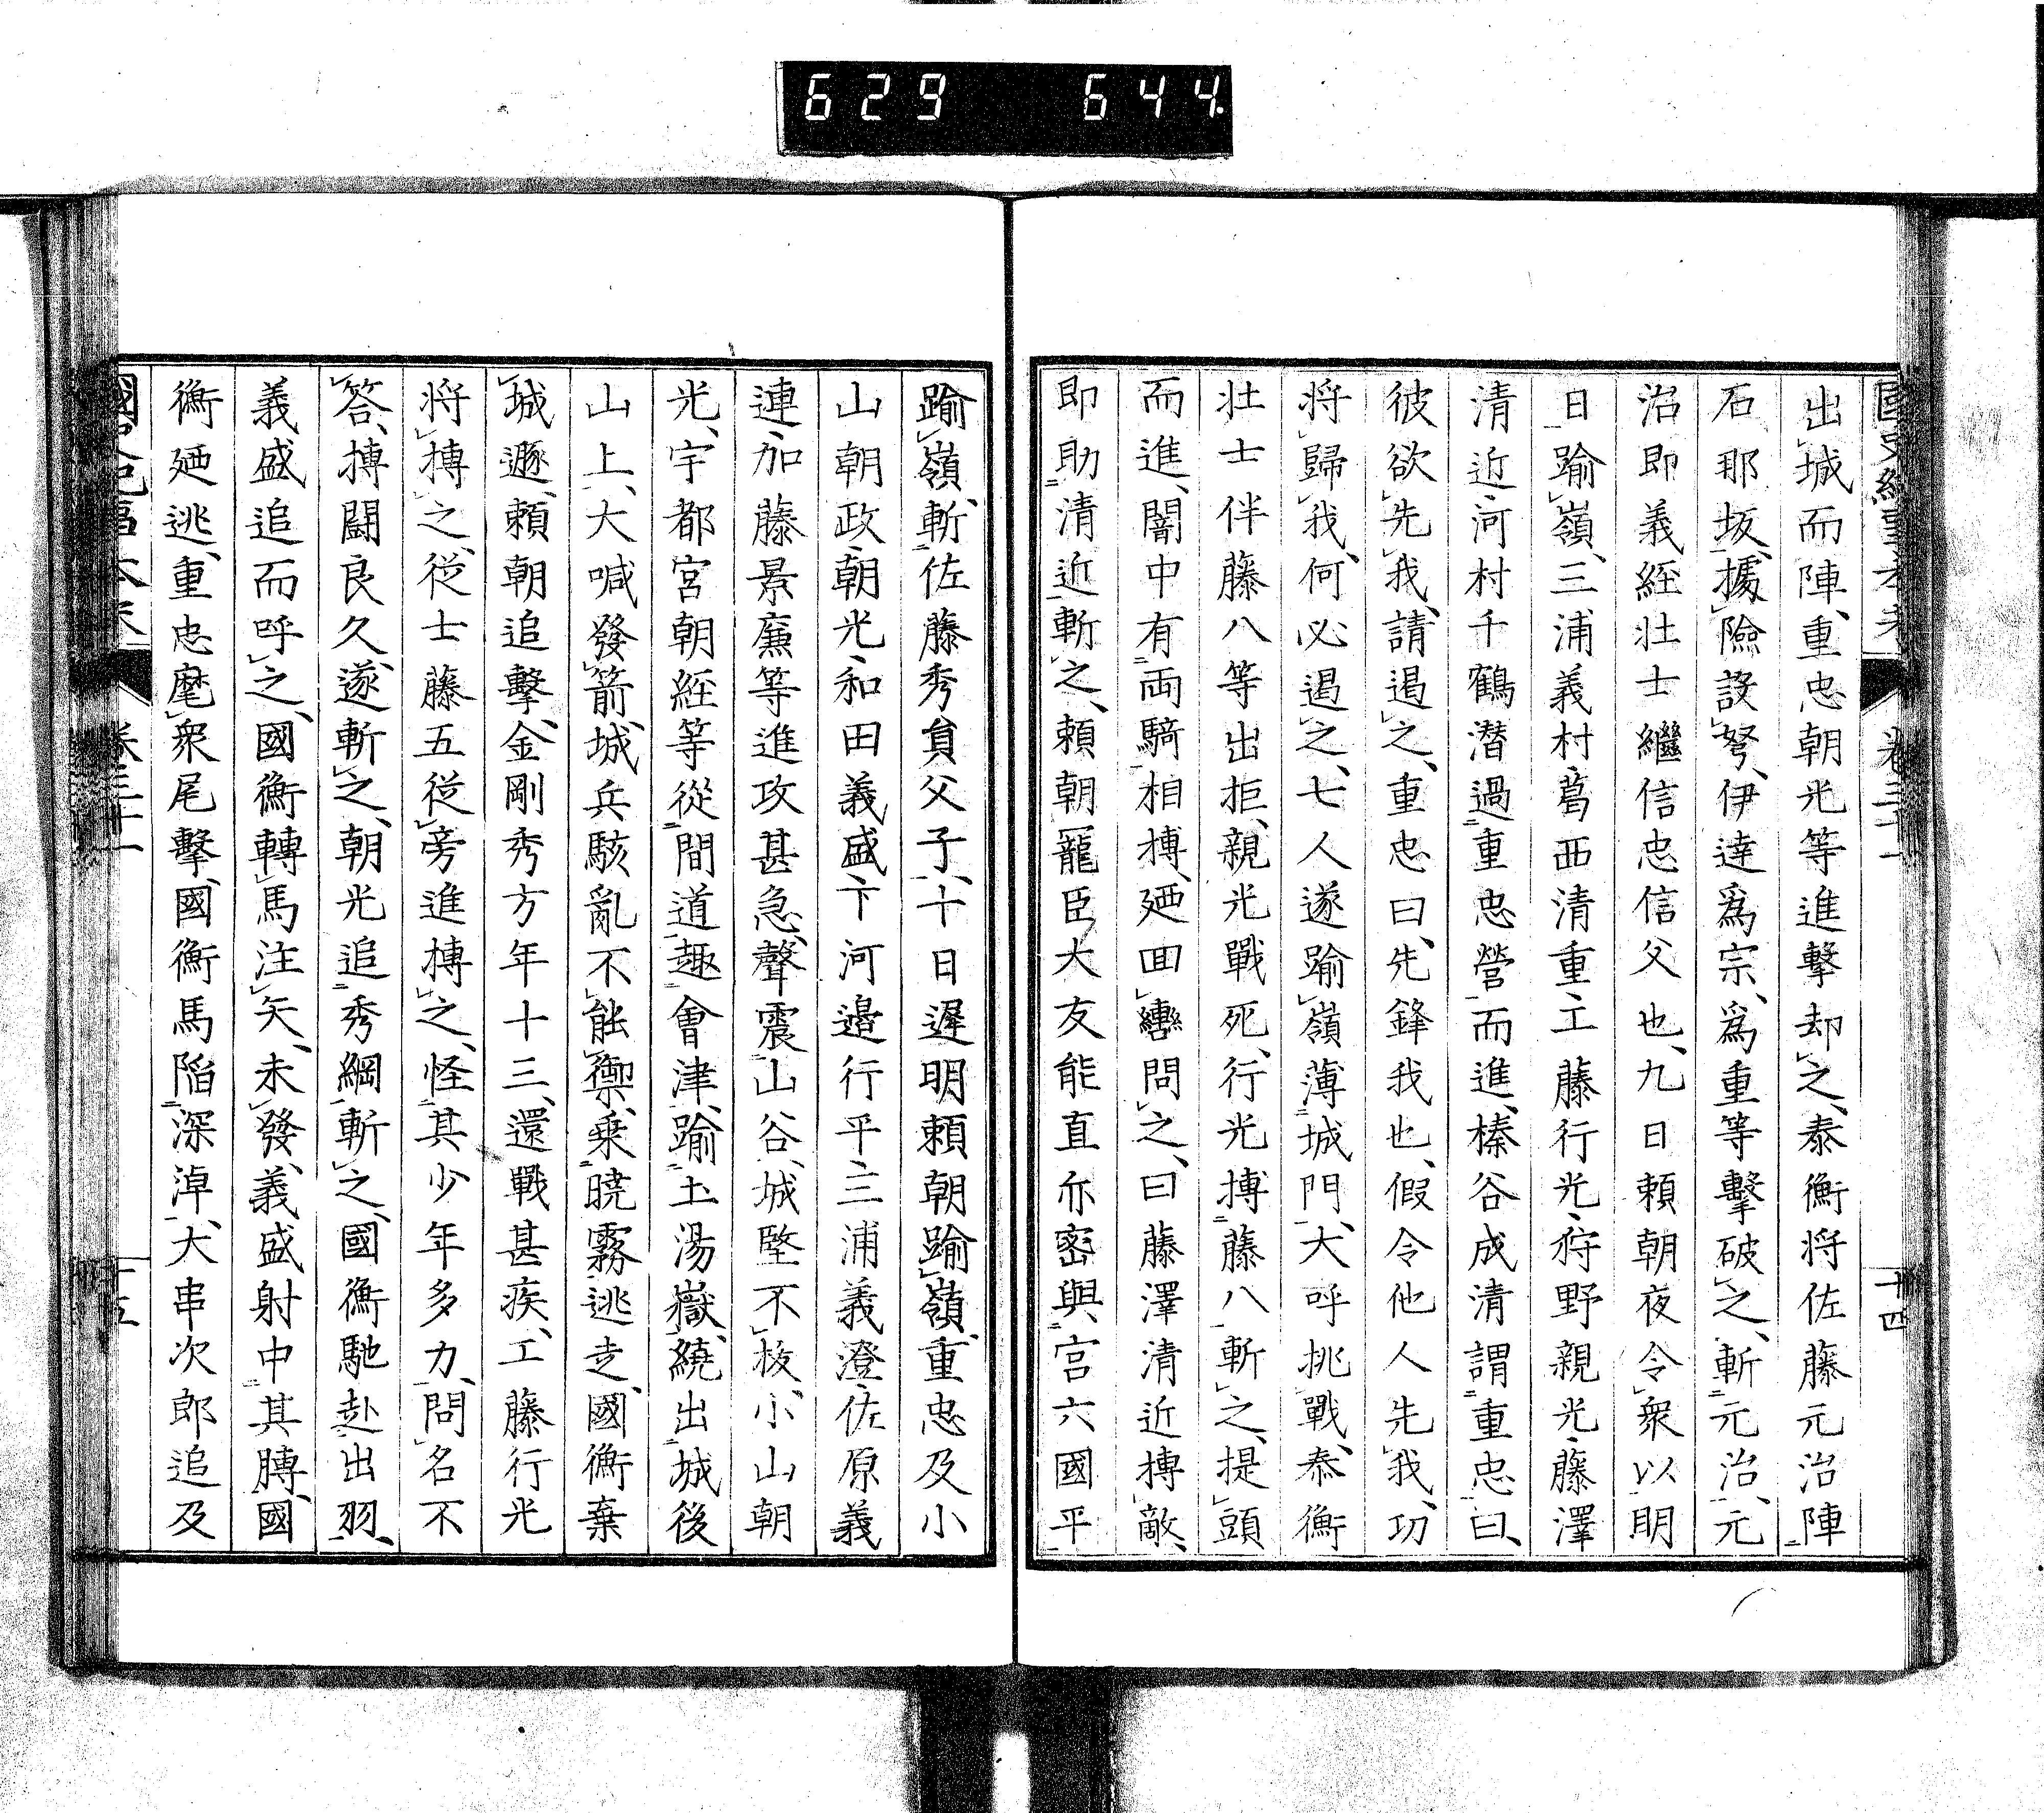 629 644
出城而陣、重忠朝光等進擊却之、泰衡将佐藤元治陣
石那坂、據險設弩、伊達爲宗、爲重等擊破之、斬元治、元
治即義経壮士繼信忠信父也、九日頼朝夜令衆以明
日踰嶺、三浦義村、葛西清重、工藤行光、狩野親光、藤澤
清近、河村千鶴潜過重忠營而進、榛谷成清謂重忠曰、
彼欲先我、請遏之、重忠曰、先鋒我也、假令他人先我、功
将歸我、何必遏之、七人遂踰嶺薄城門、大呼挑戰、泰衡
壮士伴藤八等出拒、親光戰死、行光搏藤八斬之、提頭
而進、闇中有両騎相搏、廼囬轡問之、曰藤澤清近搏敵、
即助清近斬之、頼朝寵臣大友能直亦密與宮六國平
踰嶺、斬佐藤秀員父子、十日遲明頼朝踰嶺、重忠及小
山朝政、朝光、和田義盛、下河邉行平、三浦義澄、佐原義
連、加藤景廉等進攻甚急、聲震山谷、城堅不抜、小山朝
光、宇都宮朝経等從間道趣會津、踰土湯嶽、繞出城後
山上、大喊發箭、城兵駭亂不能禦、乗曉霧逃走、國衡棄
城遯、頼朝追擊、金剛秀方年十三、還戰甚疾、工藤行光
将搏之、従士藤五従旁進搏之、怪其少年多力、問名不
答、搏闘良久、遂斬之、朝光追秀綱斬之、國衡馳赴出羽、
義盛追而呼之、國衡轉馬注矢、未發、義盛射中其膊、國
衡廼逃、重忠麾衆尾擊、國衡馬陥深淖、大串次郎追及
卷三十一
十五